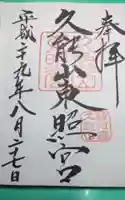 奉拝
久能山東照宮
平成二十九年八月二十七日